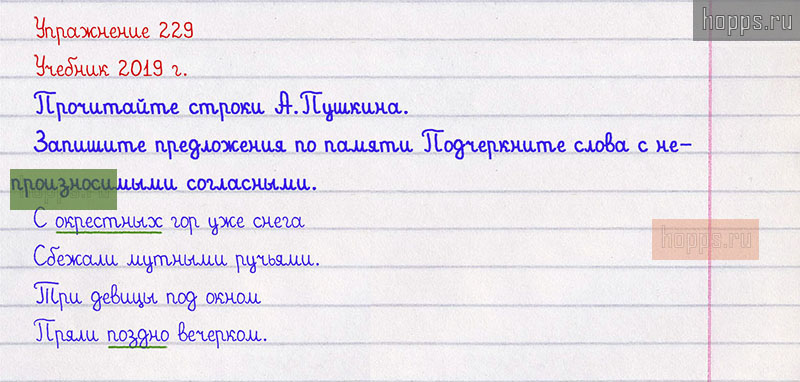 hopps.ru
Упражнение 229
Учебник 2019 г.
Прочитайте строки А.Пушкина.
Запишите предложения по памяти Подчеркните слова с не-
произносимыми согласными.
С окрестных гор уже снега
Сбежали мутными ручьями.
hopps.ru
Три девицы под окном
Пряли поздно вечерком.